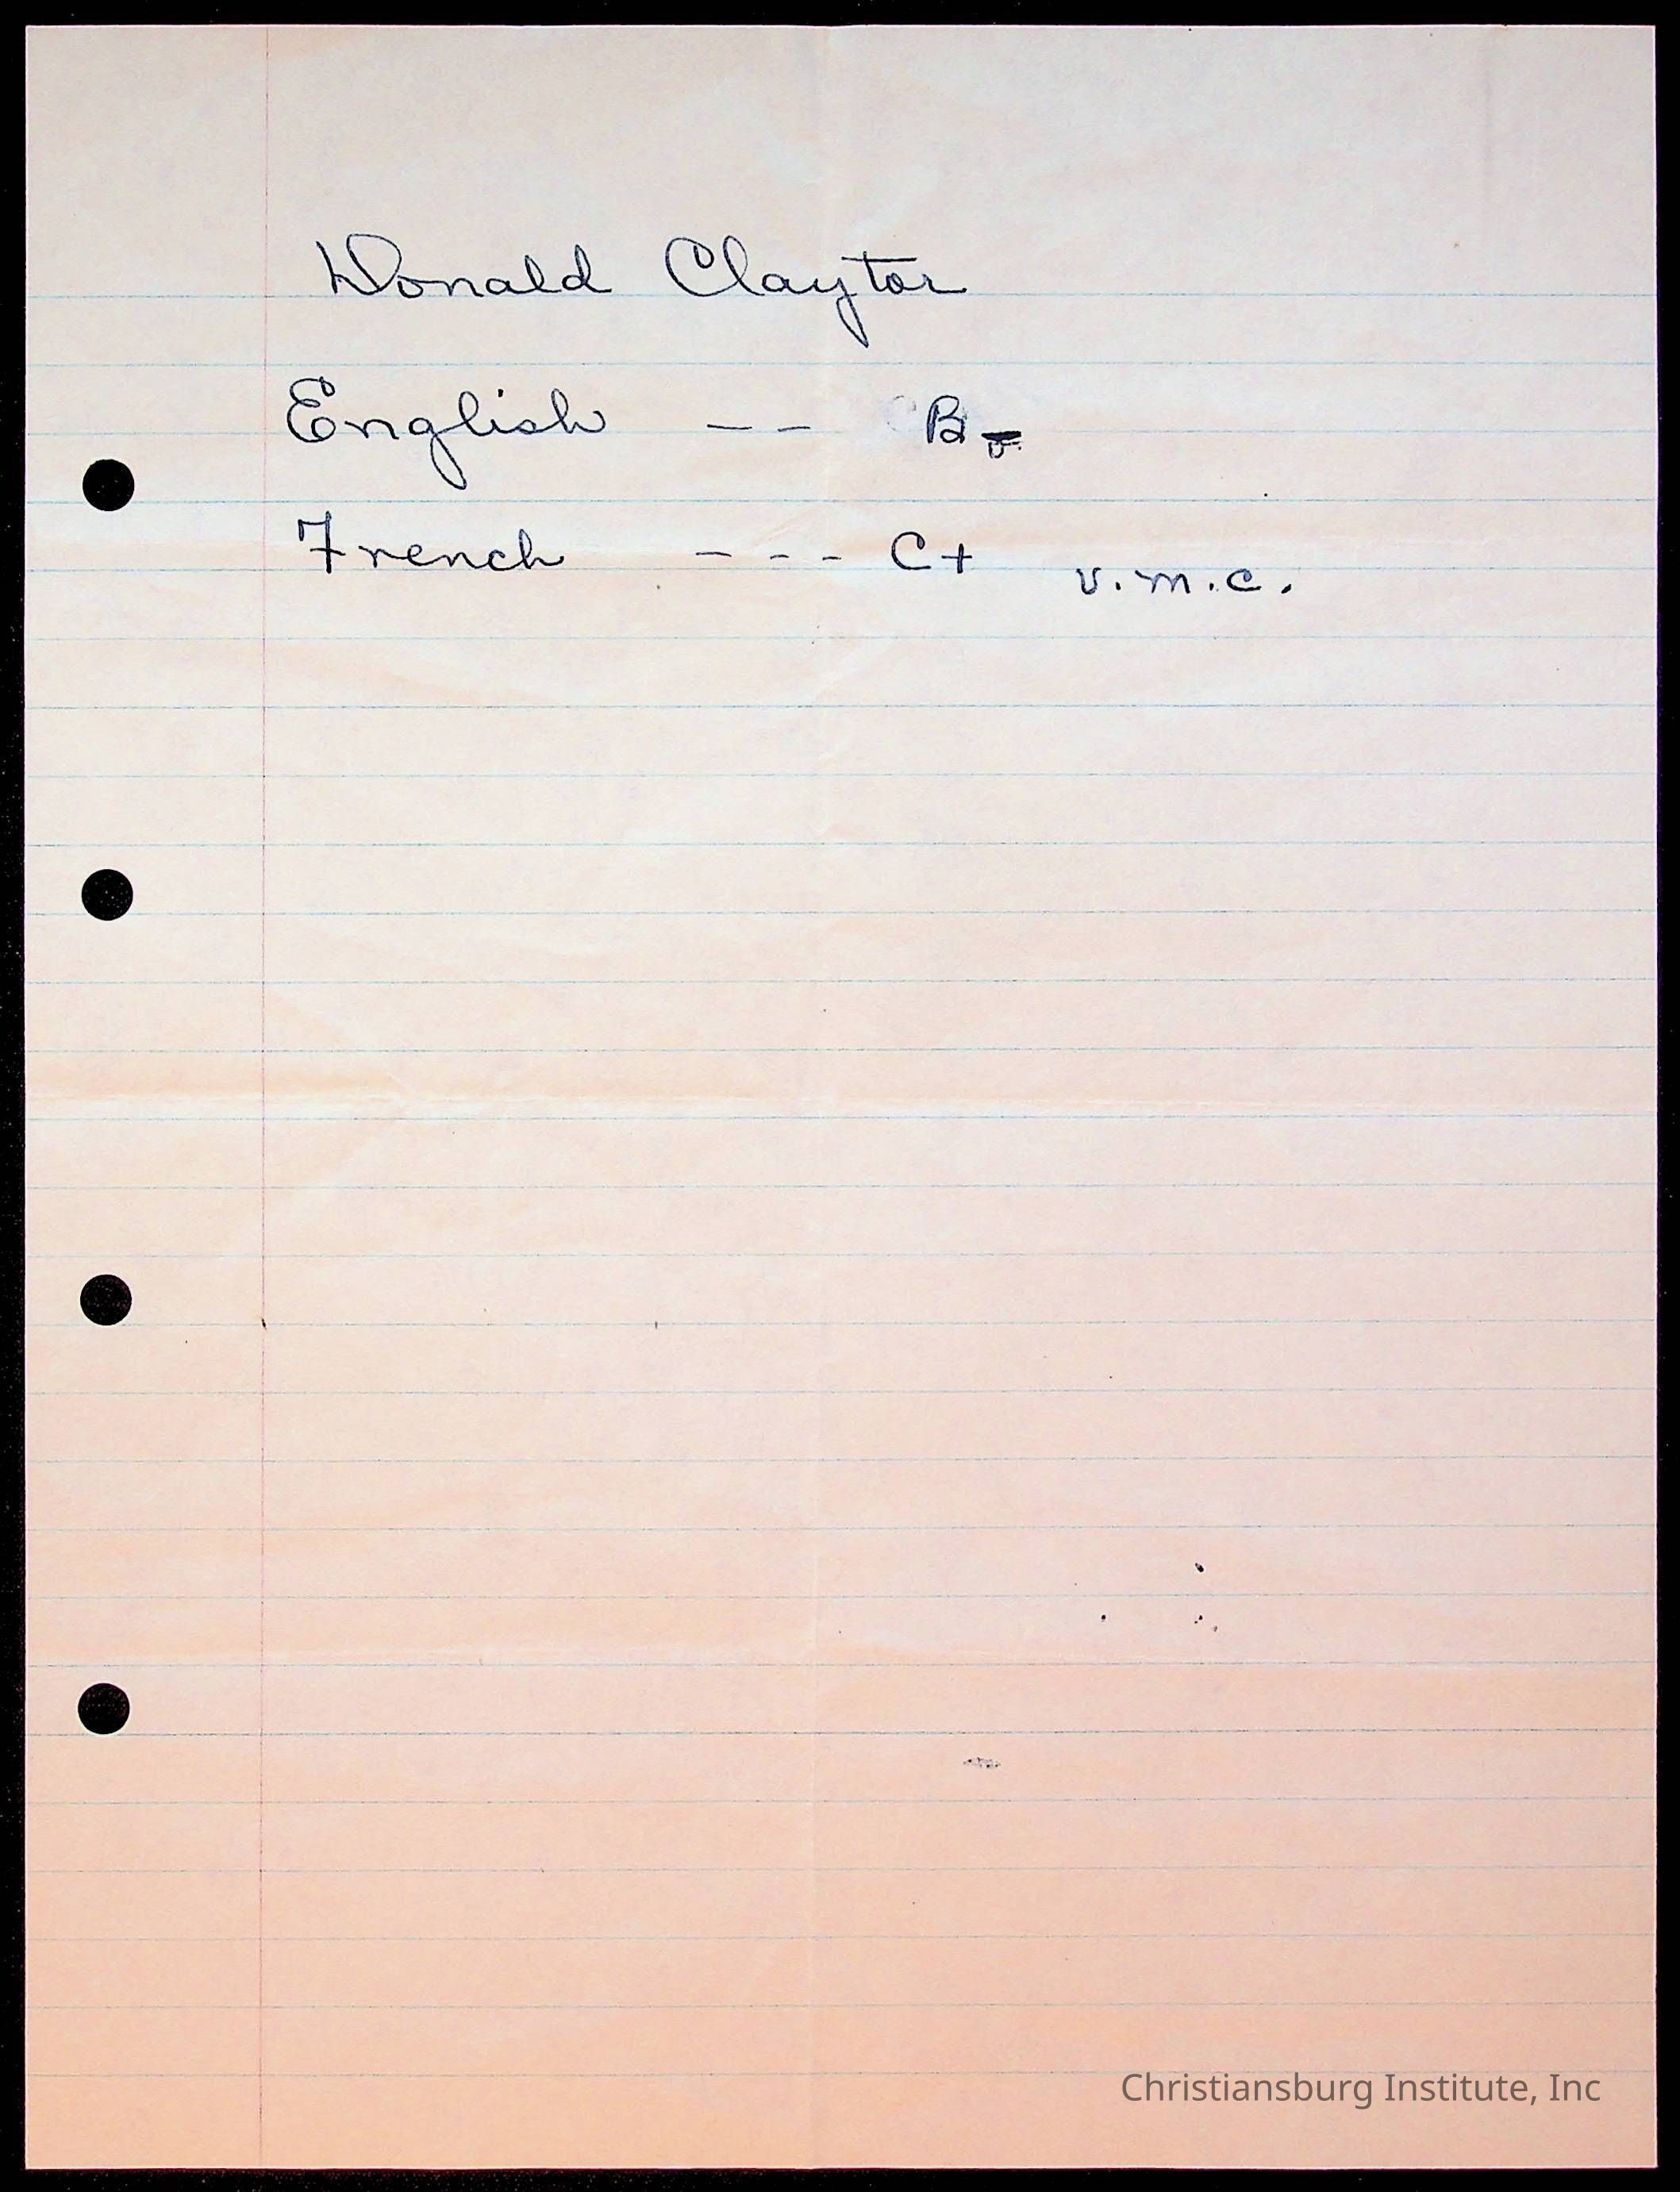 Donald Claytor
English -- B
French --- C+ v.m.c.
Christiansburg Institute, Inc